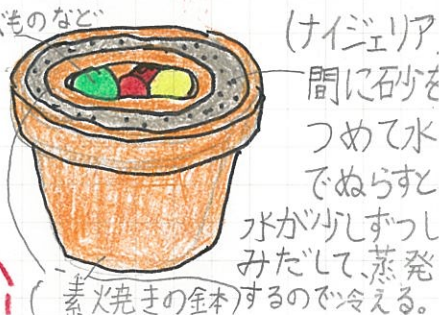 ものなど
(ナイジェリア
間に砂を
つめて水
でぬらすと
水が少しずつし
みだして、蒸発
するので冷える。
(素焼きの鉢)